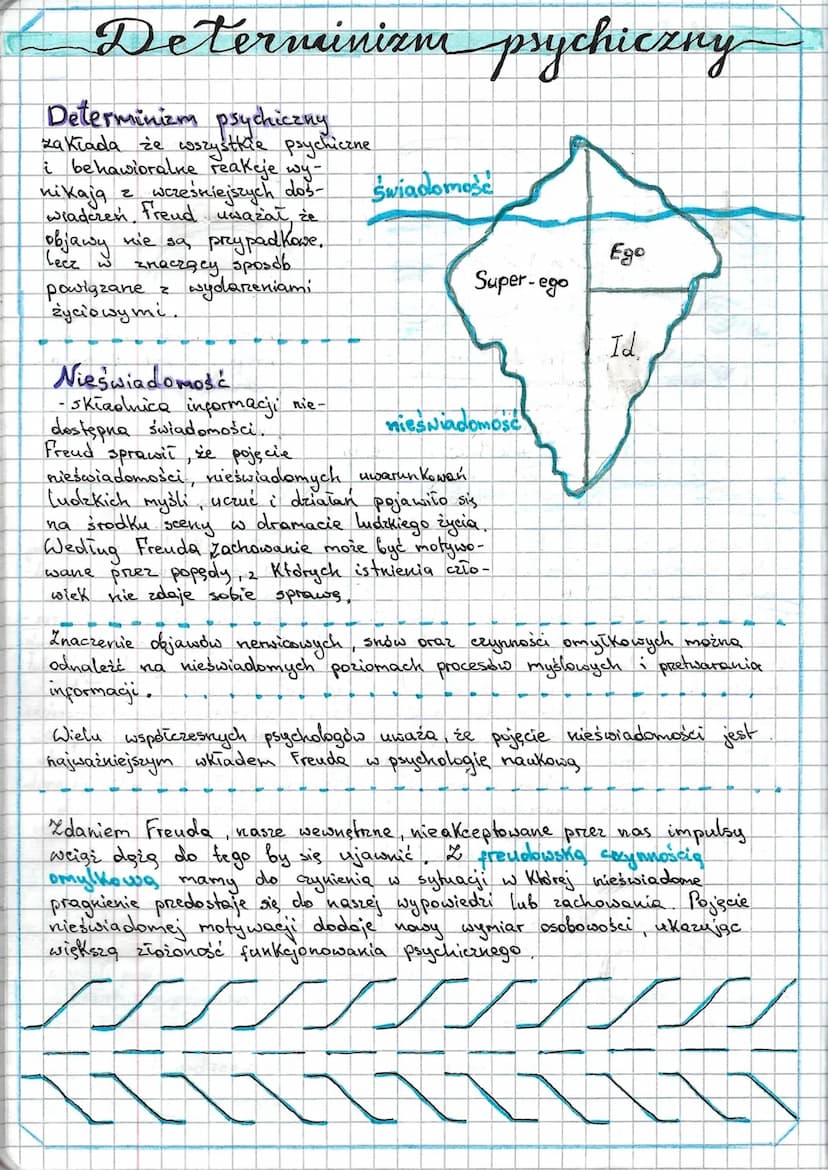 Determinizm psychiczny
Determinizm psychiczny
zakłada że wszystkie psychiczne
i behawioralne reakcje wy-
nikają z wcześniejszych doś-
wiadczeń. Freud uważał, że
objawy nie są przypadkowe,
lecz w znaczący sposób
powiązane z wydarzeniami
życiowymi.
świadomość
Super-ego
Ego
Id
nieświadomość
Nieświadomość
- składnica informacji nie-
dostępna świadomości.
Freud sprawił, że pojęcie
nieświadomości, nieświadomych uwarunkowań
ludzkich myśli, uczuć i działań pojawiło się
na środku sceny w dramacie ludzkiego życia.
Według Freuda zachowanie może być motywo-
wane przez popędy, z których istnienia czło-
wiek nie zdaje sobie sprawę.
Znaczenie objawów nerwicowych, snów oraz czynności omyłkowych można
odnaleźć na nieświadomych poziomach procesów myślowych i przetwarzania
informacji.
Wielu współczesnych psychologów uważa, że pojęcie nieświadomości jest
najważniejszym wkładem Freuda w psychologię naukową
Zdaniem Freuda, nasze wewnętrzne, nieakceptowane przez nas impulsy
wciąż dążą do tego by się ujawnić. Z freudowską czynnością
omyłkową mamy do czynienia w sytuacji w której nieświadome
pragnienie przedostaje się do naszej wypowiedzi lub zachowania. Pojęcie
nieświadomej motywacji dodaje nowy wymiar osobowości, ukazując
większą złożoność funkcjonowania psychicznego.